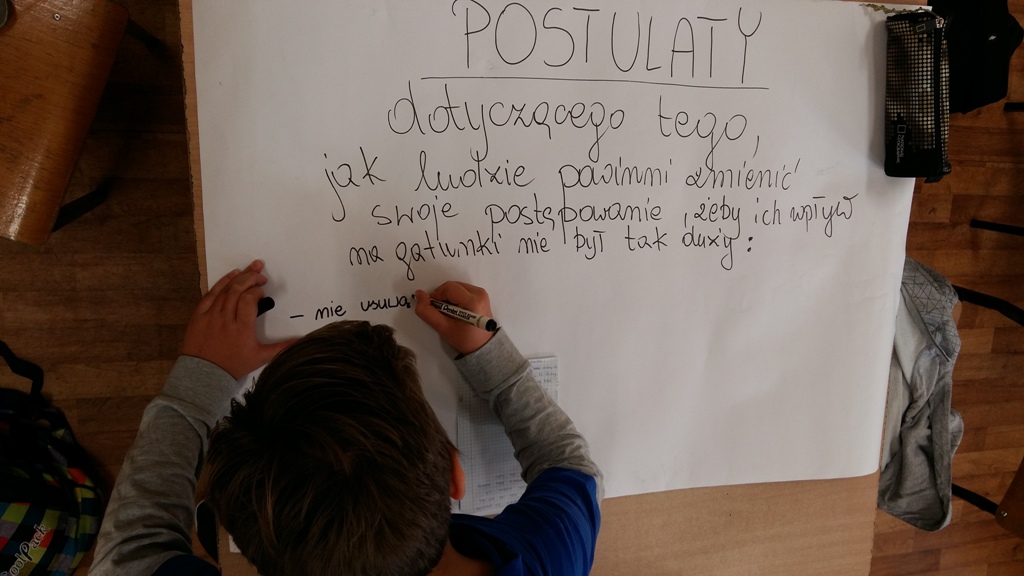 POSTULATY
dotyczącego tego,
jak ludzie powinni zmienić
swoje postępowanie, żeby ich wpływ
na gatunki nie był tak duży:
- nie usuwa
CoolPack